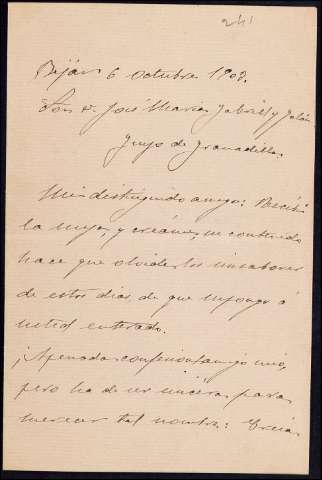 241
Béjar 6 octubre 1903.
Sr. D. José María Gabriel y Galán
Guijo de Granadilla.
Mi distinguido amigo: Recibí
la suya, y créame, su contenido
hace que olvide los sinsabores
de estos días de que supongo á
usted enterado.
¡Apenada confesión amigo mío,
pero ha de ser sincera para
merecer tal nombre: Creía